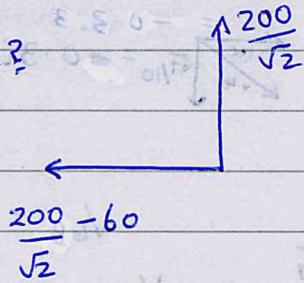 ?
200
√2
200 - 60
√2